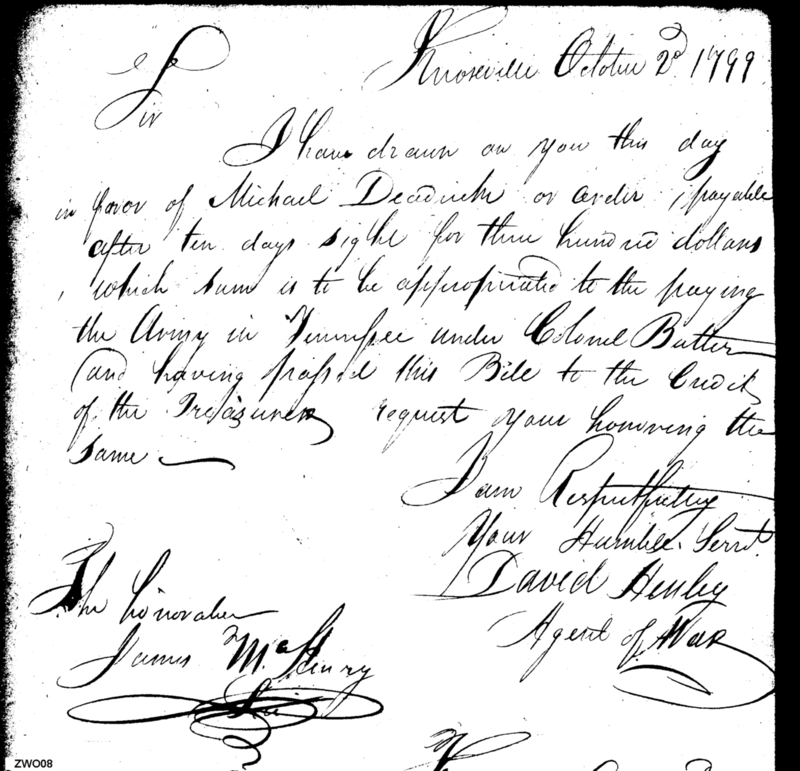 Knoxville October 2d 1799
Sir
I have drawn on you this day
in favor of Michael Deadrick or order, payable
after ten days sight for three hundred dollars
, which sum is to be appropriated to the paying
the Army in Tennessee under Colonel Butler
and having passed this Bill to the Credit
of the Treasurer request your honoring the
same
I am Respectfully
Your Humble Servt.
David Henley
Agent of War
The honorable
James McHenry
ZWO08